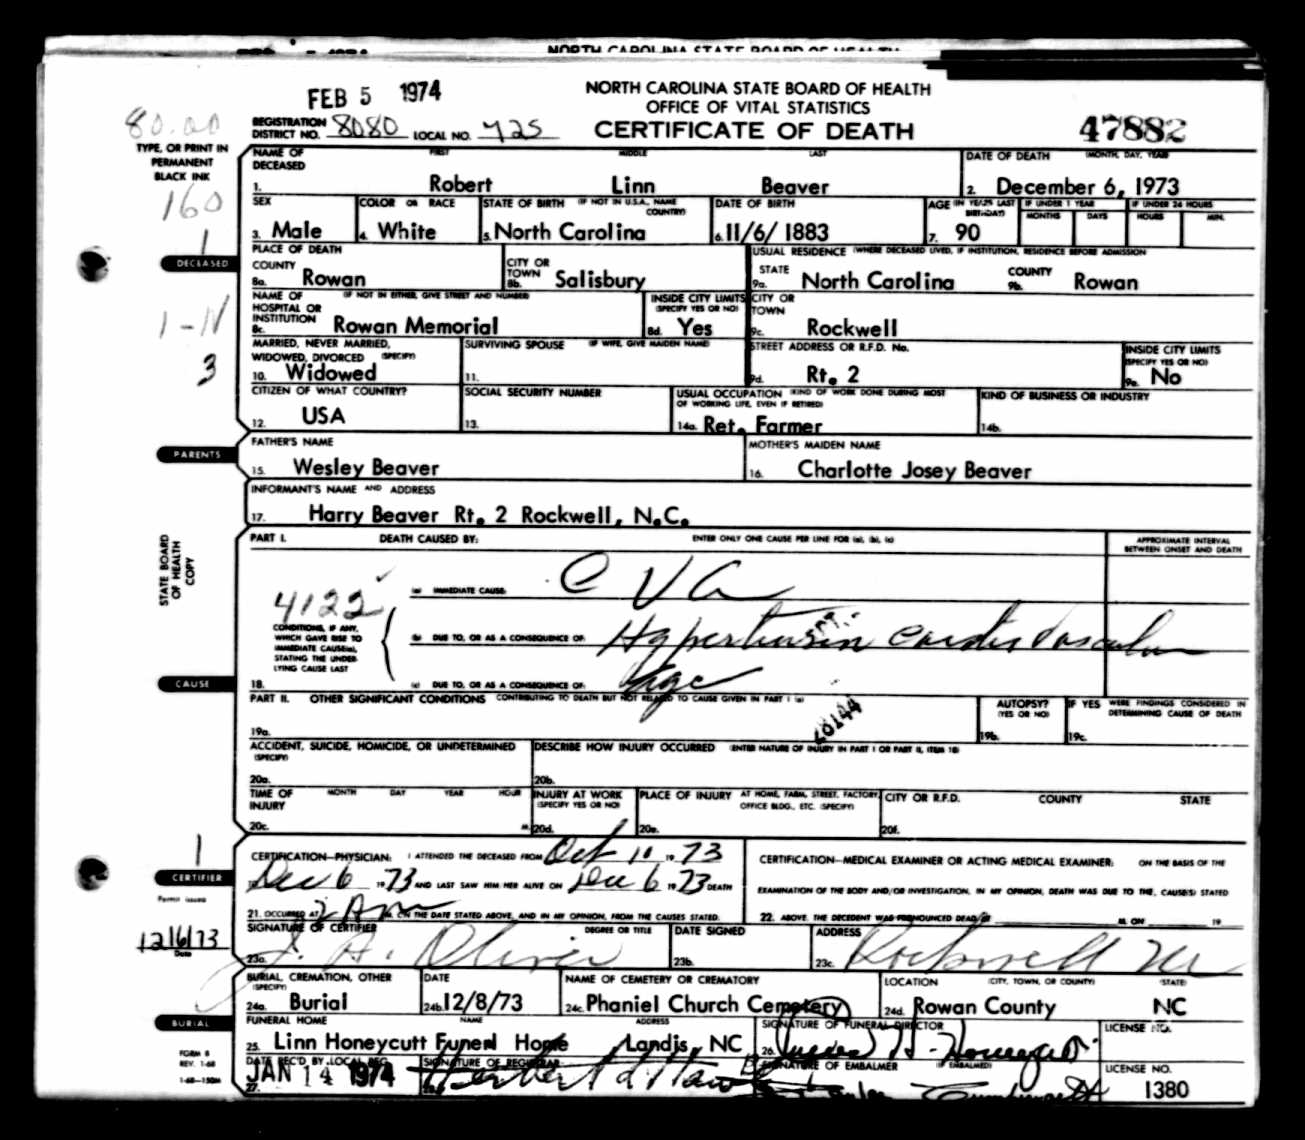 NORTH CAROLINA STATE BOARD OF HEALTH
FEB 5 1974
NORTH CAROLINA STATE BOARD OF HEALTH
OFFICE OF VITAL STATISTICS
CERTIFICATE OF DEATH
47882
80.00
REGISTRATION DISTRICT NO. 8080 LOCAL NO. 425
TYPE, OR PRINT IN
PERMANENT
BLACK INK
160
1
DECEASED
1-11
3
NAME OF DECEASED FIRST MIDDLE LAST
1. Robert Linn Beaver
DATE OF DEATH (MONTH, DAY, YEAR)
2. December 6, 1973
SEX
3. Male
COLOR OR RACE
4. White
STATE OF BIRTH (IF NOT IN U.S.A., NAME COUNTRY)
5. North Carolina
DATE OF BIRTH
6. 11/6/ 1883
AGE (IN YEARS LAST BIRTHDAY)
7. 90
IF UNDER 1 YEAR
MONTHS DAYS
IF UNDER 24 HOURS
HOURS MIN.
PLACE OF DEATH
COUNTY
8a. Rowan
CITY OR TOWN
8b. Salisbury
USUAL RESIDENCE (WHERE DECEASED LIVED, IF INSTITUTION, RESIDENCE BEFORE ADMISSION
STATE
9a. North Carolina
COUNTY
9b. Rowan
NAME OF (IF NOT IN EITHER, GIVE STREET AND NUMBER)
HOSPITAL OR
INSTITUTION
8c. Rowan Memorial
INSIDE CITY LIMITS
(SPECIFY YES OR NO)
8d. Yes
CITY OR
TOWN
9c. Rockwell
MARRIED, NEVER MARRIED,
WIDOWED, DIVORCED (SPECIFY)
10. Widowed
SURVIVING SPOUSE (IF WIFE, GIVE MAIDEN NAME)
11.
STREET ADDRESS OR R.F.D. No.
9d. Rt. 2
INSIDE CITY LIMITS
(SPECIFY YES OR NO)
9e. No
CITIZEN OF WHAT COUNTRY?
12. USA
SOCIAL SECURITY NUMBER
13.
USUAL OCCUPATION (KIND OF WORK DONE DURING MOST
OF WORKING LIFE, EVEN IF RETIRED)
14a. Ret. Farmer
KIND OF BUSINESS OR INDUSTRY
14b.
PARENTS
FATHER'S NAME
15. Wesley Beaver
MOTHER'S MAIDEN NAME
16. Charlotte Josey Beaver
INFORMANT'S NAME AND ADDRESS
17. Harry Beaver Rt. 2 Rockwell, N.C.
STATE BOARD
OF HEALTH
COPY
PART I. DEATH CAUSED BY: ENTER ONLY ONE CAUSE PER LINE FOR (a), (b), (c)
APPROXIMATE INTERVAL
BETWEEN ONSET AND DEATH
(a) IMMEDIATE CAUSE: CVA
4122
CONDITIONS, IF ANY,
WHICH GAVE RISE TO
IMMEDIATE CAUSE(a),
STATING THE UNDER-
LYING CAUSE LAST
(b) DUE TO, OR AS A CONSEQUENCE OF: Hypertension Cardio Vascular
18. (c) DUE TO, OR AS A CONSEQUENCE OF: Age
CAUSE
PART II. OTHER SIGNIFICANT CONDITIONS CONTRIBUTING TO DEATH BUT NOT RELATED TO CAUSE GIVEN IN PART I (a)
19a.
28144
AUTOPSY?
(YES OR NO)
19b.
IF YES WERE FINDINGS CONSIDERED IN
DETERMINING CAUSE OF DEATH
19c.
ACCIDENT, SUICIDE, HOMICIDE, OR UNDETERMINED
(SPECIFY)
20a.
DESCRIBE HOW INJURY OCCURRED (ENTER NATURE OF INJURY IN PART I OR PART II, ITEM 18)
20b.
TIME OF INJURY MONTH DAY YEAR HOUR
20c. M.
INJURY AT WORK
(SPECIFY YES OR NO)
20d.
PLACE OF INJURY AT HOME, FARM, STREET, FACTORY,
OFFICE BLDG., ETC. (SPECIFY)
20e.
CITY OR R.F.D. COUNTY STATE
20f.
1
CERTIFIER
Permit issued
12/6/73
Date
CERTIFICATION—PHYSICIAN: I ATTENDED THE DECEASED FROM Oct 10 19 73
Dec 6 19 73 AND LAST SAW HIM HER ALIVE ON Dec 6 19 73 DEATH
21. OCCURRED AT 2 AM M. ON THE DATE STATED ABOVE, AND IN MY OPINION, FROM THE CAUSES STATED.
CERTIFICATION—MEDICAL EXAMINER OR ACTING MEDICAL EXAMINER: ON THE BASIS OF THE
EXAMINATION OF THE BODY AND/OR INVESTIGATION, IN MY OPINION, DEATH WAS DUE TO THE, CAUSE(S) STATED
22. ABOVE. THE DECEDENT WAS PRONOUNCED DEAD M. ON 19
SIGNATURE OF CERTIFIER DEGREE OR TITLE
23a. J. A. Oliver
DATE SIGNED
23b.
ADDRESS
23c. Rockwell NC
BURIAL, CREMATION, OTHER
(SPECIFY)
24a. Burial
DATE
24b. 12/8/73
NAME OF CEMETERY OR CREMATORY
24c. Phaniel Church Cemetery
LOCATION (CITY, TOWN, OR COUNTY) (STATE)
24d. Rowan County NC
BURIAL
FUNERAL HOME NAME ADDRESS
25. Linn Honeycutt Funeral Home Landis, NC
SIGNATURE OF FUNERAL DIRECTOR
26.
LICENSE NO.
FORM 8
REV. 1-68
1-68—150M
DATE REC'D BY LOCAL REG.
27. JAN 14 1974
SIGNATURE OF REGISTRAR
SIGNATURE OF EMBALMER (IF EMBALMED)
LICENSE NO.
1380